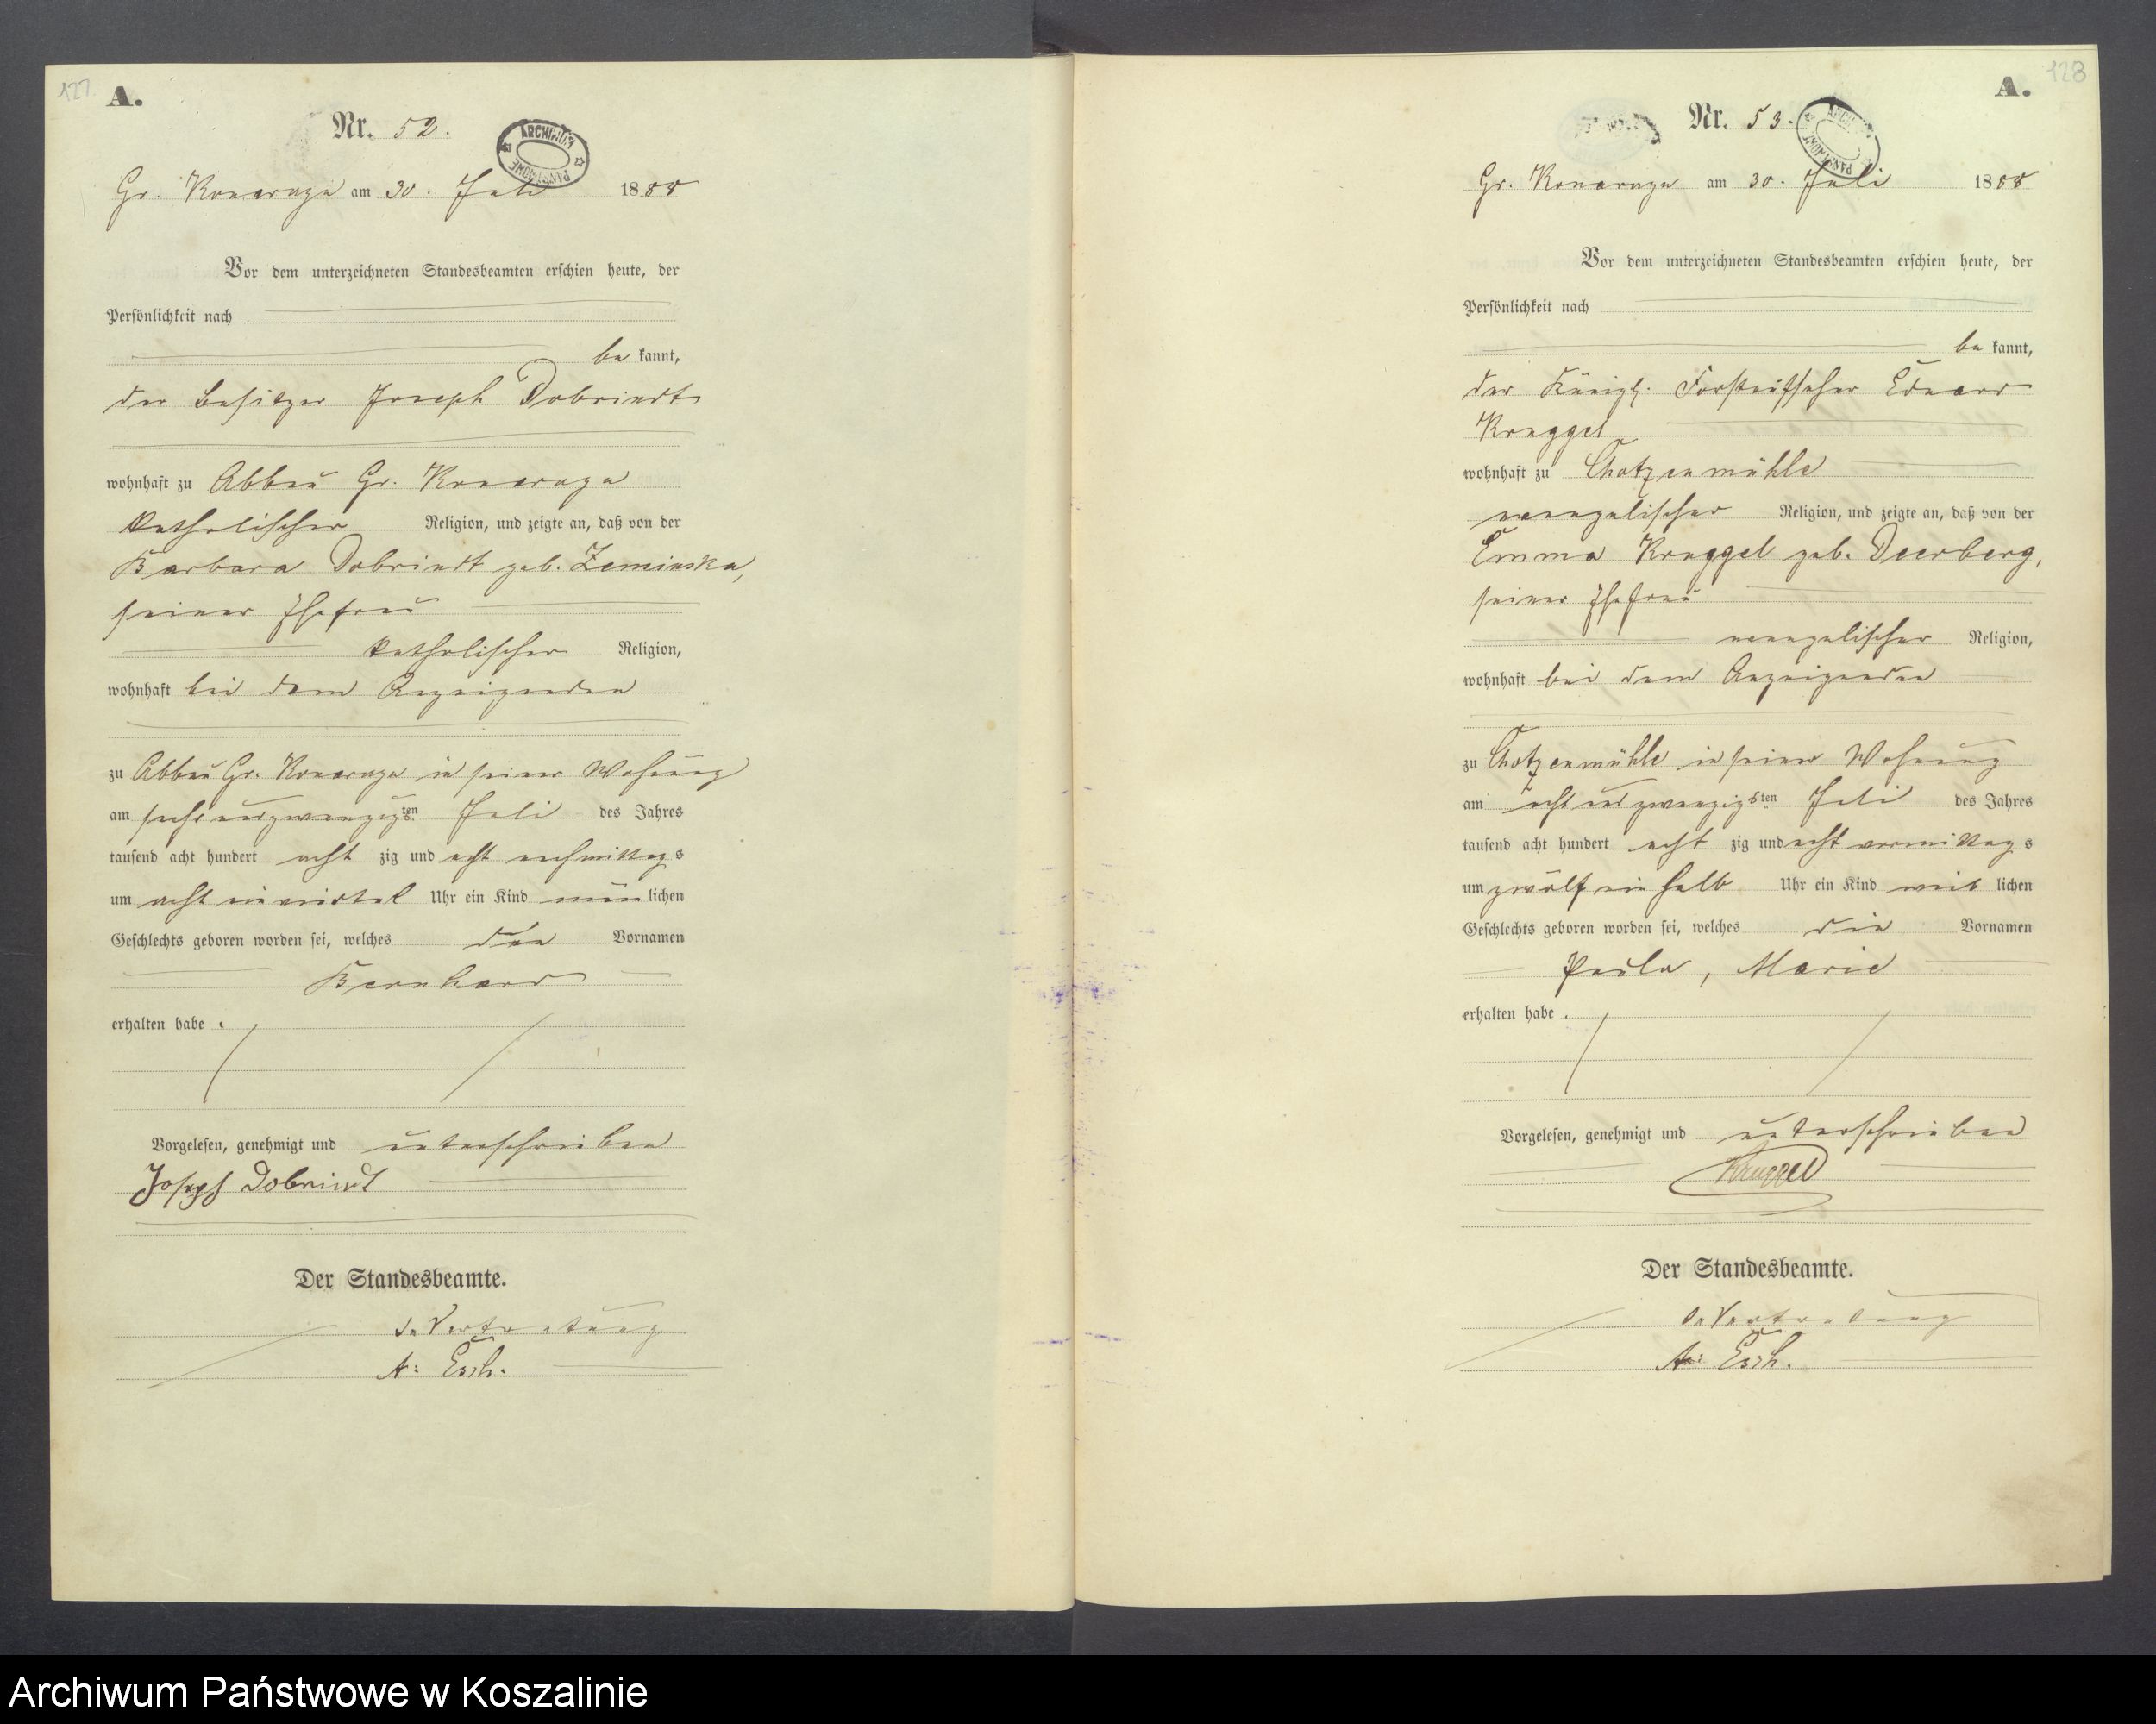 127.
A.
Nr. 52.
ARCHIWUM PAŃSTWOWE
Gr. Konarczyn am 30. Juli 1888
Vor dem unterzeichneten Standesbeamten erschien heute, der
Persönlichkeit nach
be kannt,
der Besitzer Joseph Dobrindt
wohnhaft zu Abbau Gr. Konarczyn
katholischer Religion, und zeigte an, daß von der
Barbara Dobrindt geb. Zeminska,
seiner Ehefrau
katholischer Religion,
wohnhaft bei dem Anzeigenden
zu Abbau Gr. Konarczyn in seiner Wohnung
am sechsundzwanzigsten Juli des Jahres
tausend acht hundert acht zig und acht nachmittags
um acht ein viertel Uhr ein Kind männlichen
Geschlechts geboren worden sei, welches den Vornamen
Bernhard
erhalten habe.
Vorgelesen, genehmigt und unterschrieben
Joseph Dobrindt
Der Standesbeamte.
In Vertretung
A. Esch.
128
A.
Nr. 53.
ARCHIWUM PAŃSTWOWE
Gr. Konarczyn am 30. Juli 1888
Vor dem unterzeichneten Standesbeamten erschien heute, der
Persönlichkeit nach
be kannt,
der Königl. Forstaufseher Eduard
Kruggel
wohnhaft zu Chotzenmühle
evangelischer Religion, und zeigte an, daß von der
Emma Kruggel geb. Deerberg,
seiner Ehefrau
evangelischer Religion,
wohnhaft bei dem Anzeigenden
zu Chotzenmühle in seiner Wohnung
am achtundzwanzigsten Juli des Jahres
tausend acht hundert acht zig und acht vormittags
um zwölf ein halb Uhr ein Kind weiblichen
Geschlechts geboren worden sei, welches die Vornamen
Paula, Marie
erhalten habe.
Vorgelesen, genehmigt und unterschrieben
Kruggel
Der Standesbeamte.
In Vertretung
A. Esch.
Archiwum Państwowe w Koszalinie